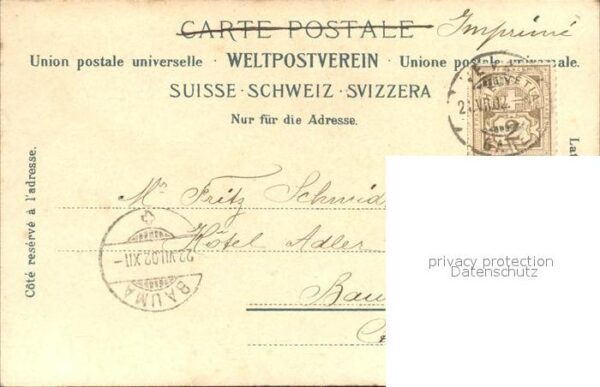 CARTE POSTALE Imprimé
Union postale universelle · WELTPOSTVEREIN · Unione postale universale.
SUISSE · SCHWEIZ · SVIZZERA
Nur für die Adresse.
Côté resérvé à l'adresse.
Mr Fritz Schmid
Hôtel Adler
Bau
BAUMA
22.VII.02.XII-
HELVETIA
2
privacy protection
Datenschutz